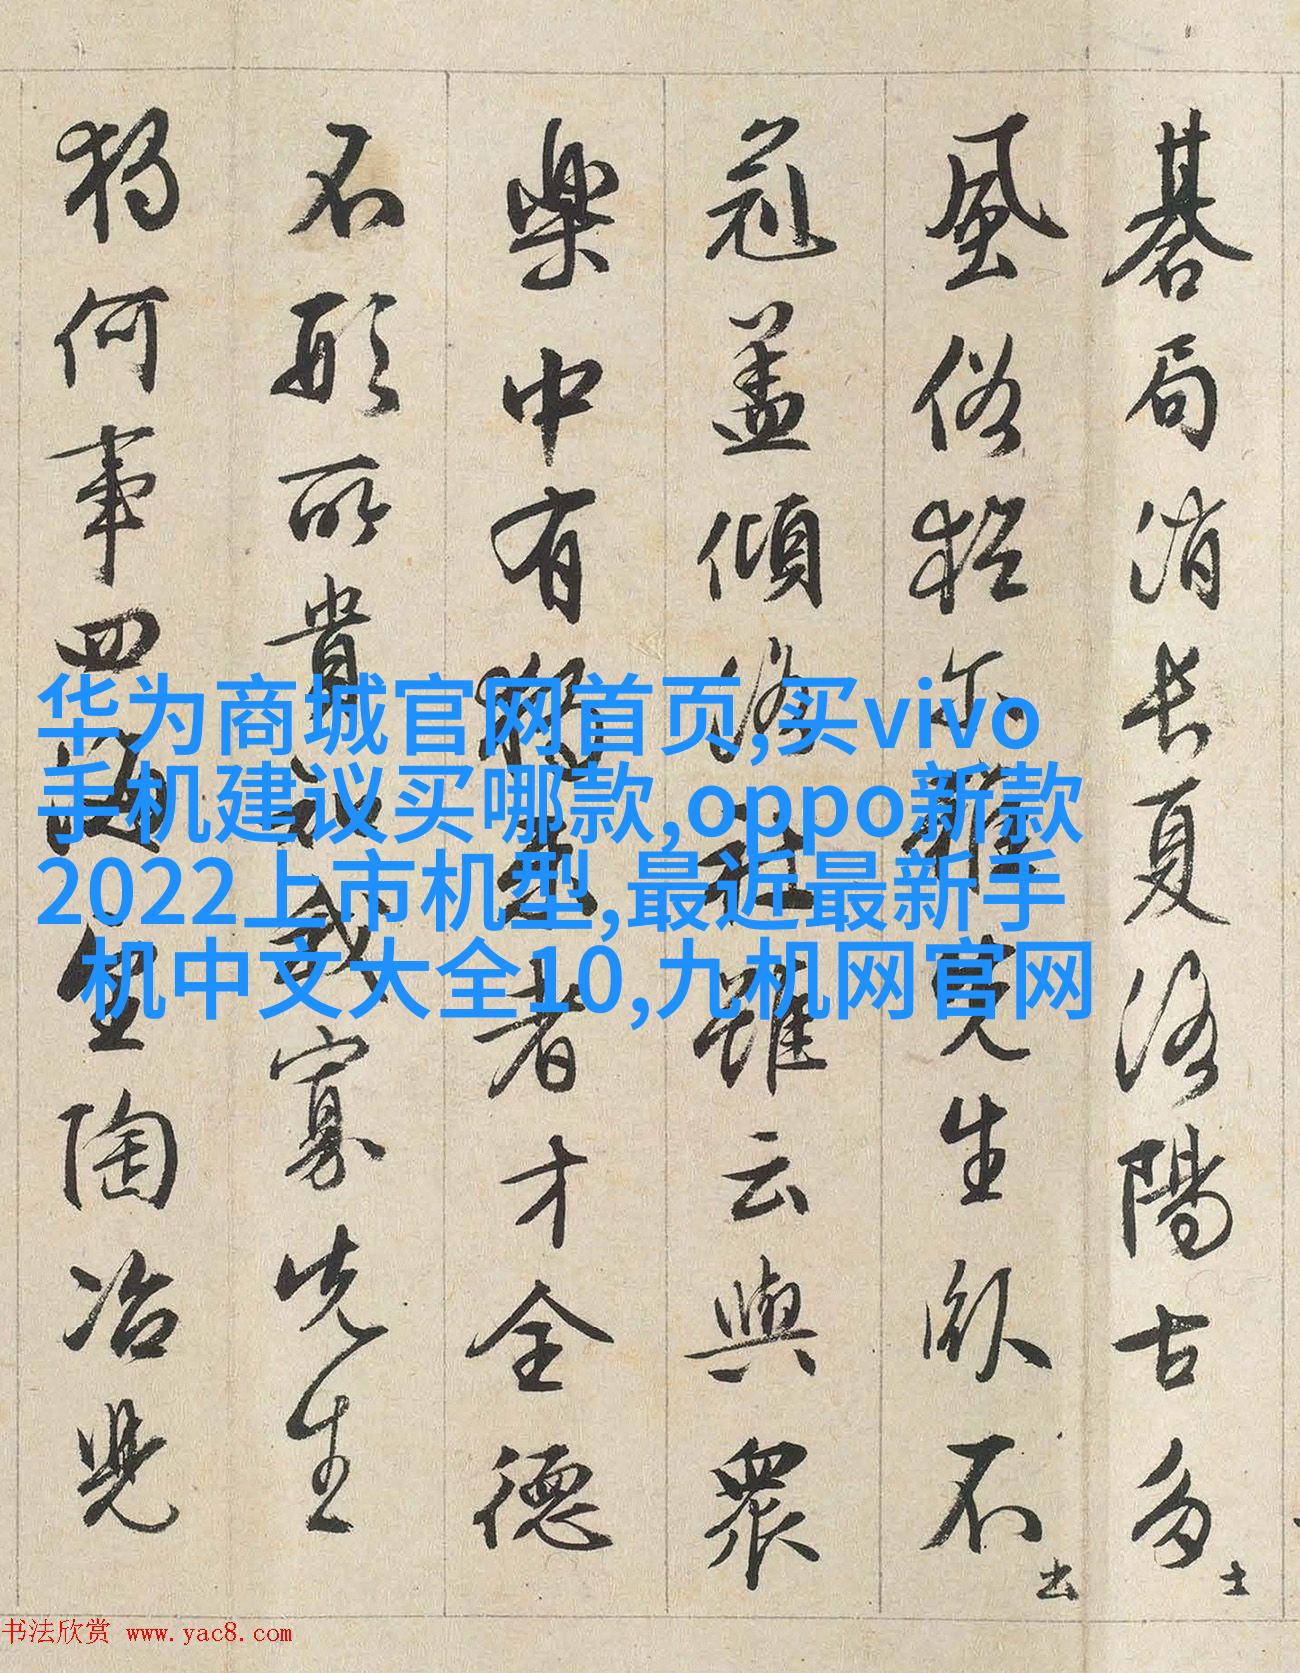 碁局消長夏洛陽古多士
風俗猶尔雅先生卧不出
冠盖傾洛社雖云與衆
樂中有獨樂者才全德
不形所貴知我寡先生
獨何事四海望陶冶兒
华为商城官网首页,买vivo
手机建议买哪款,oppo新款
2022上市机型,最近最新手
机中文大全10,九机网官网
书法欣赏 www.yac8.com